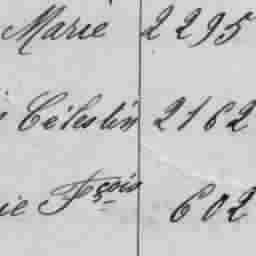 Marie 2295
Célestin 2162
ie Fçois 602